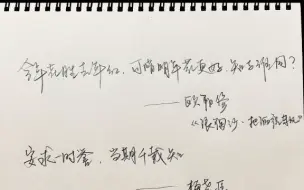 今年花胜去年红，可惜明年花更好，知与谁同？
——欧阳修
《浪淘沙·把酒祝东风》
安求一时誉，当期千载知
——梅尧臣